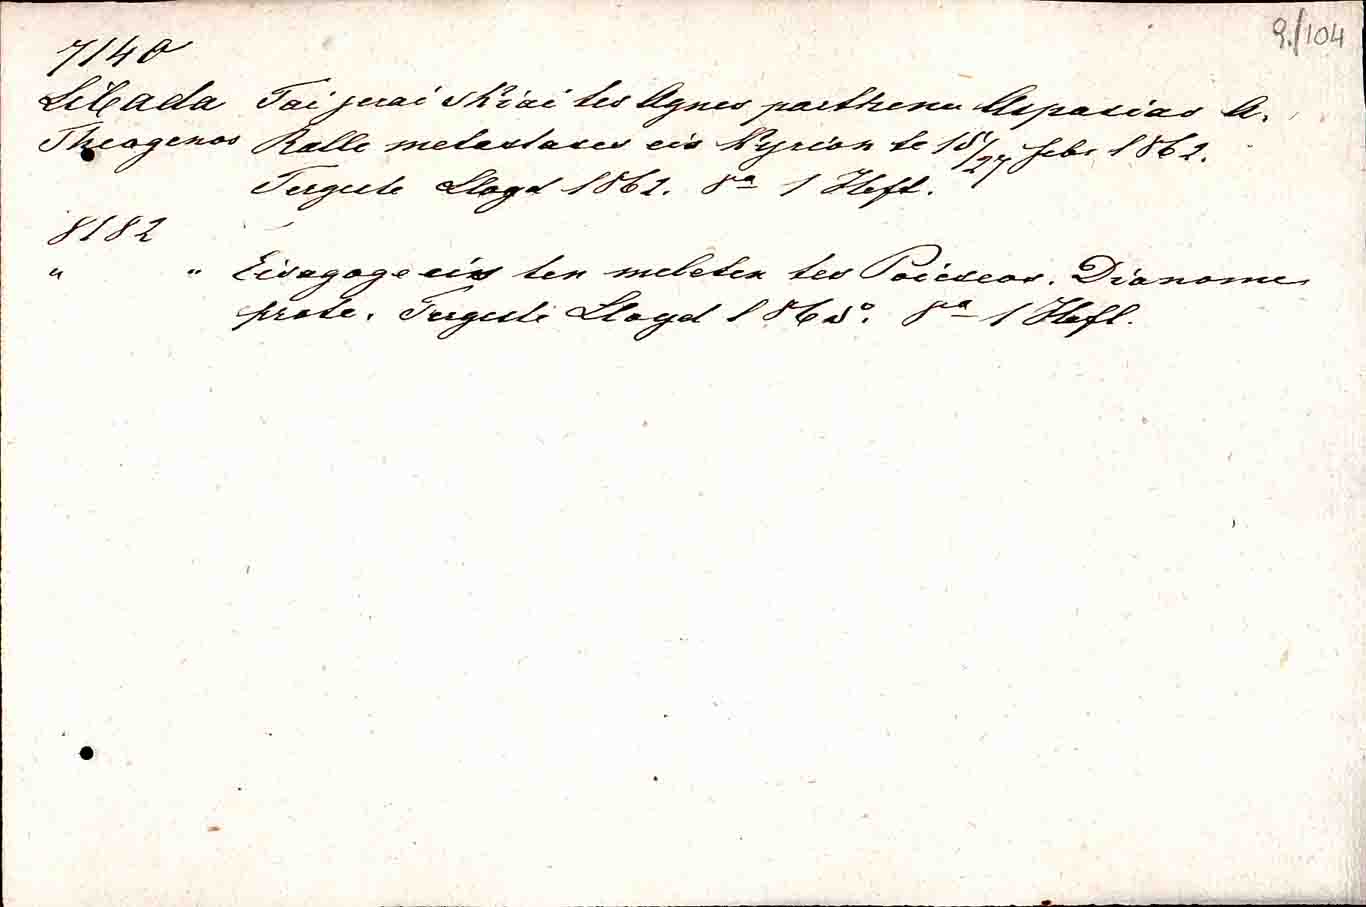 9./104
7140
Libada Tai jerai skiai tes Agnes parthenu Aspasias A.
Theogenos Ralle metastases eis Kyrion te 15/27 febr 1862.
Tergeste Lloyd 1862. 8a 1 Heft.
8182
" " Eisagoge eis ten meleten tes Poieseos. Dianome
prote. Tergeste Lloyd 1865. 8a 1 Heft.